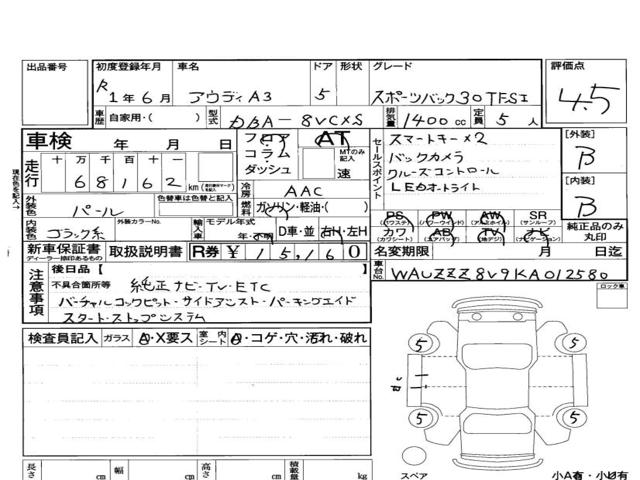 出品番号 初度登録年月 車名 ドア 形状 グレード 評価点
R1年6月 アウディA3 5 スポーツバック30TFSI 4.5
車歴 自家用・( ) 型式 DBA-8VCXS 排気量 1400cc 定員 5人
車検 年 月 日 フロア コラム ダッシュ AT MTのみ記入 速
走行 十万千百十一 68162 km
冷房 AAC
外装色 パール 色替車は色替と記入 燃料 ガソリン・軽油・( )
内装色 ブラック系 外装カラーNo. 輸入車 モデル年式 年・不明 D車・並 右H・左H
現在色を記入
セールスポイント
スマートキー×2
バックカメラ
クルーズコントロール
LEDオートライト
[外装] B
[内装] B
PS (パワステ) PW (パワーウインド) AW (アルミホイル) SR (サンルーフ)
カワ (カワシート) AB (エアバッグ) TV (地デジ) ナビ (ナビゲーション)
純正品のみ丸印
新車保証書 ディーラー捺印あるもの 取扱説明書 R券 ¥15,160 名変期限 年 月 日
車台No. WAUZZZ8V9KA012580
注意事項 後日品【 】
不具合箇所等 純正ナビ・TV・ETC
バーチャルコックピット・サイドアシスト・パーキングエイド
スタート・ストップシステム
ロック車
検査員記入 ガラス A・X要ス 室内シート A・コゲ・穴・汚れ・破れ
5 5
5 5
スペア
長さ cm 幅 cm 高さ cm 積載量 kg
小A有・小U有